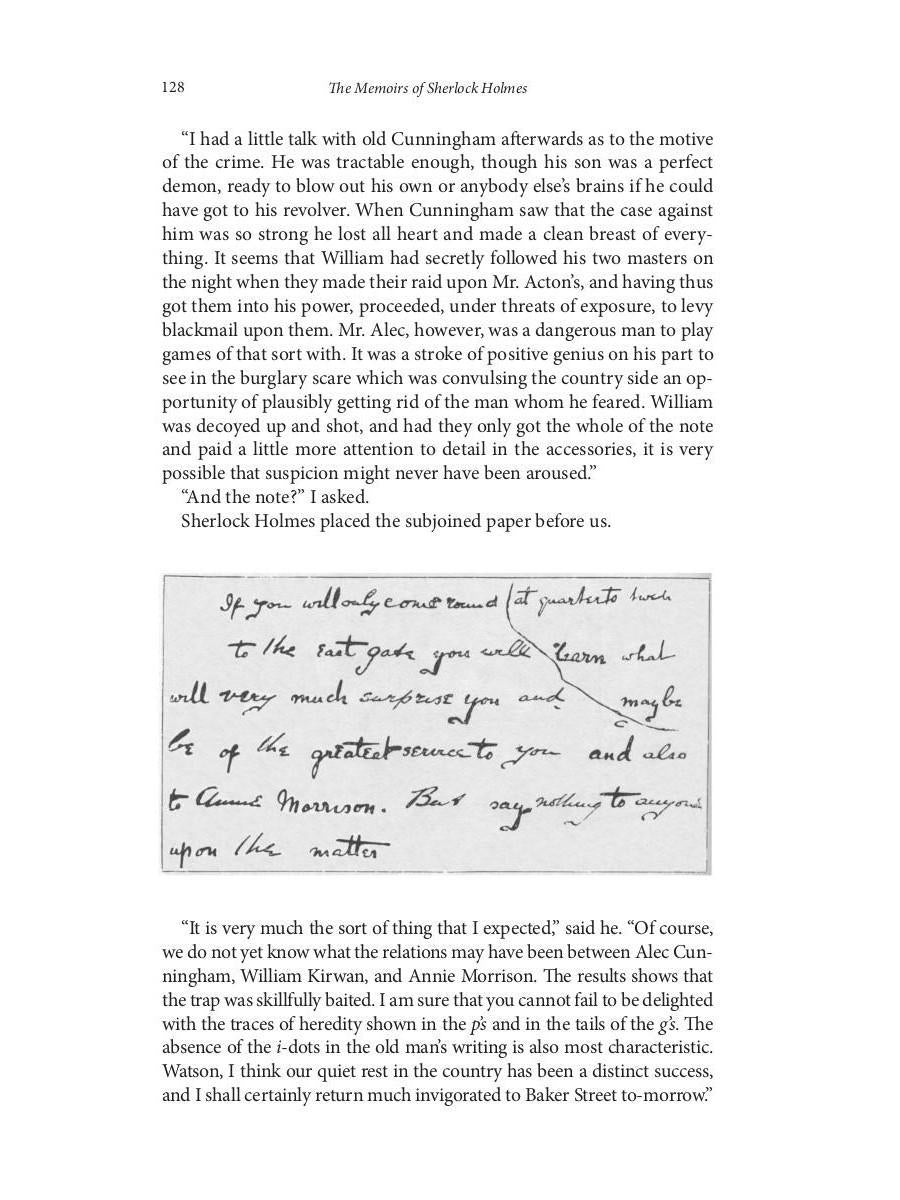 128
The Memoirs of Sherlock Holmes
“I had a little talk with old Cunningham afterwards as to the motive
of the crime. He was tractable enough, though his son was a perfect
demon, ready to blow out his own or anybody else’s brains if he could
have got to his revolver. When Cunningham saw that the case against
him was so strong he lost all heart and made a clean breast of every-
thing. It seems that William had secretly followed his two masters on
the night when they made their raid upon Mr. Acton’s, and having thus
got them into his power, proceeded, under threats of exposure, to levy
blackmail upon them. Mr. Alec, however, was a dangerous man to play
games of that sort with. It was a stroke of positive genius on his part to
see in the burglary scare which was convulsing the country side an op-
portunity of plausibly getting rid of the man whom he feared. William
was decoyed up and shot, and had they only got the whole of the note
and paid a little more attention to detail in the accessories, it is very
possible that suspicion might never have been aroused.”
“And the note?” I asked.
Sherlock Holmes placed the subjoined paper before us.
If you will only come round at quarter to twelve
to the east gate you will learn what
will very much surprise you and maybe
be of the greatest service to you and also
to Annie Morrison. But say nothing to anyone
upon the matter
“It is very much the sort of thing that I expected,” said he. “Of course,
we do not yet know what the relations may have been between Alec Cun-
ningham, William Kirwan, and Annie Morrison. The results shows that
the trap was skillfully baited. I am sure that you cannot fail to be delighted
with the traces of heredity shown in the p’s and in the tails of the g’s. The
absence of the i-dots in the old man’s writing is also most characteristic.
Watson, I think our quiet rest in the country has been a distinct success,
and I shall certainly return much invigorated to Baker Street to-morrow.”